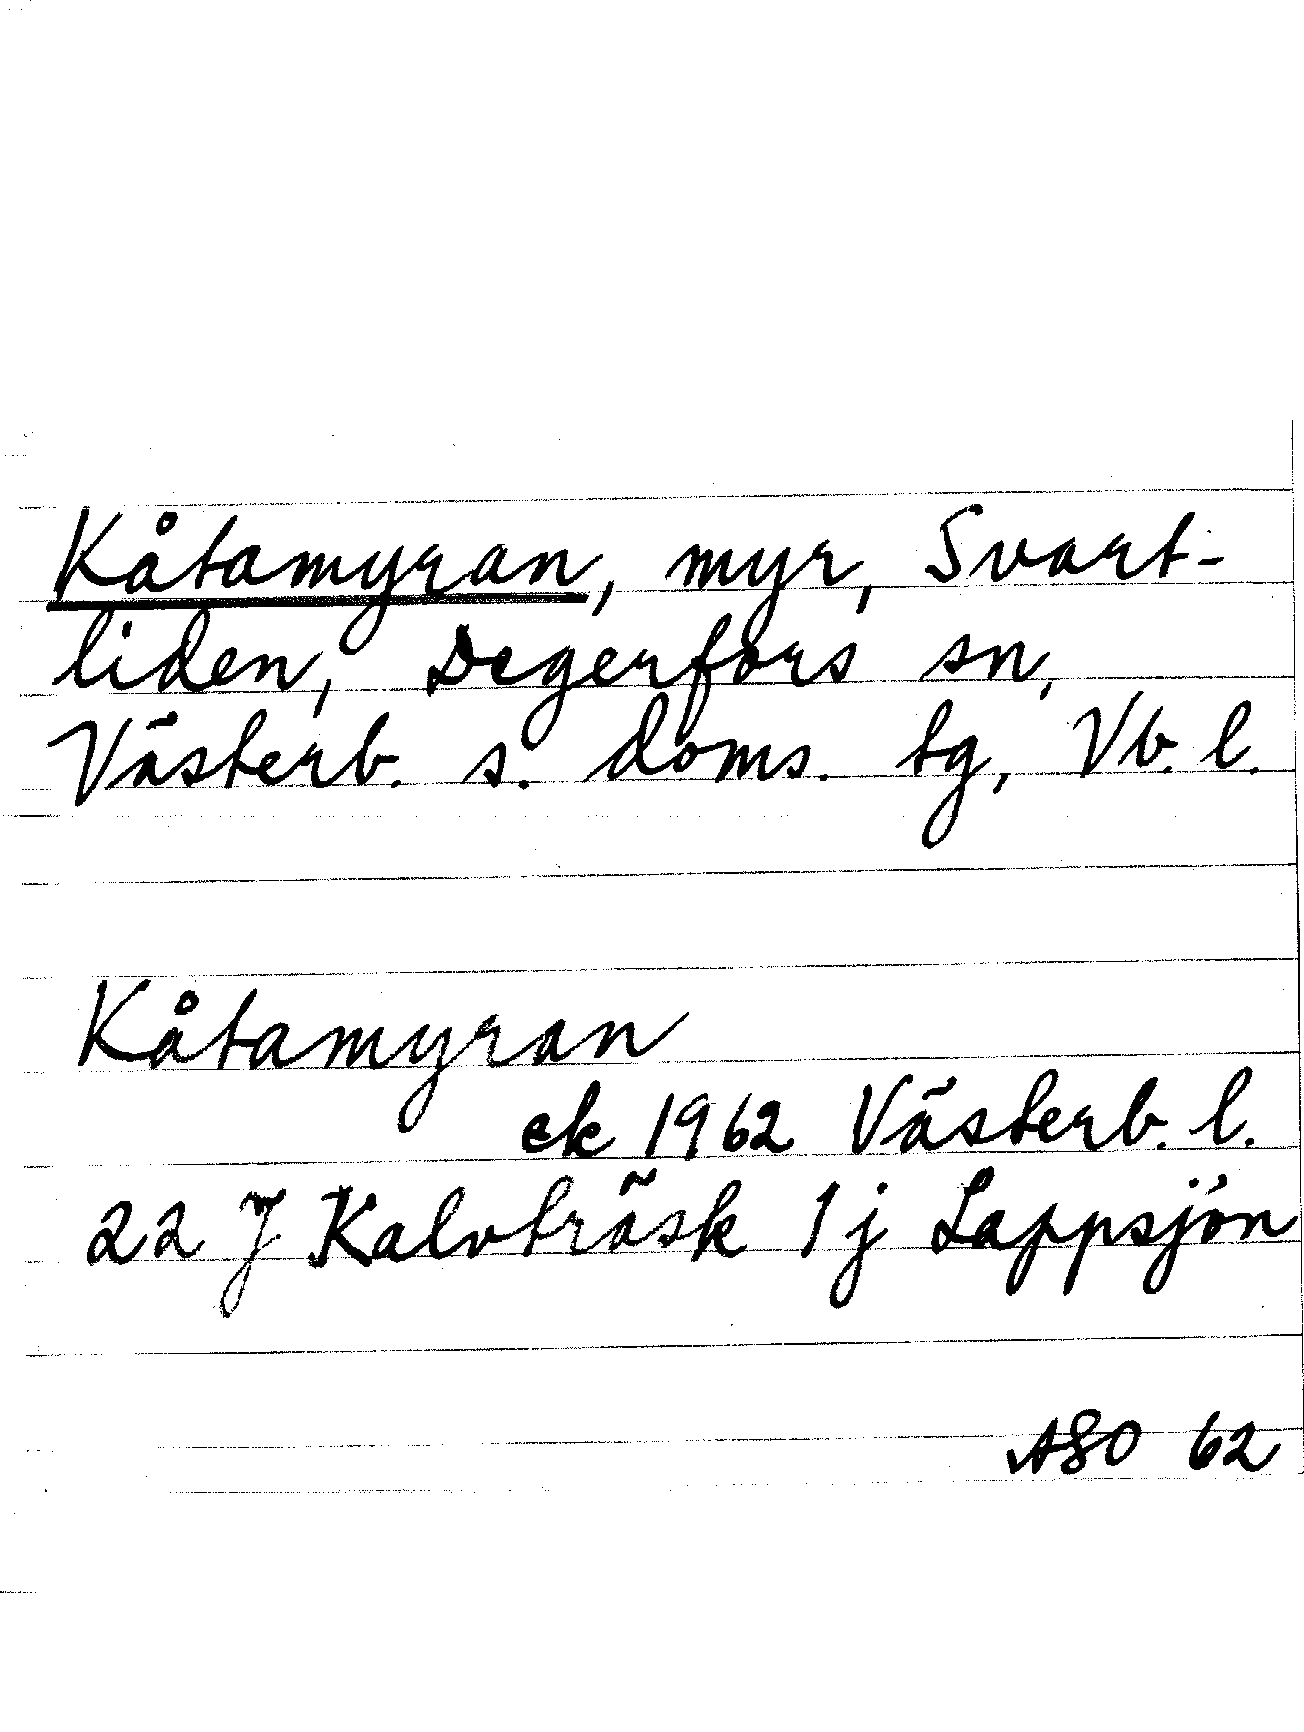 Kåtamyran, myr, Svart-
liden, Degerfors sn,
Västerb. s. doms. tg, Vb. l.
Kåtamyran
ek 1962 Västerb. l.
22 J Kalvträsk 1j Lappsjön
ASO 62